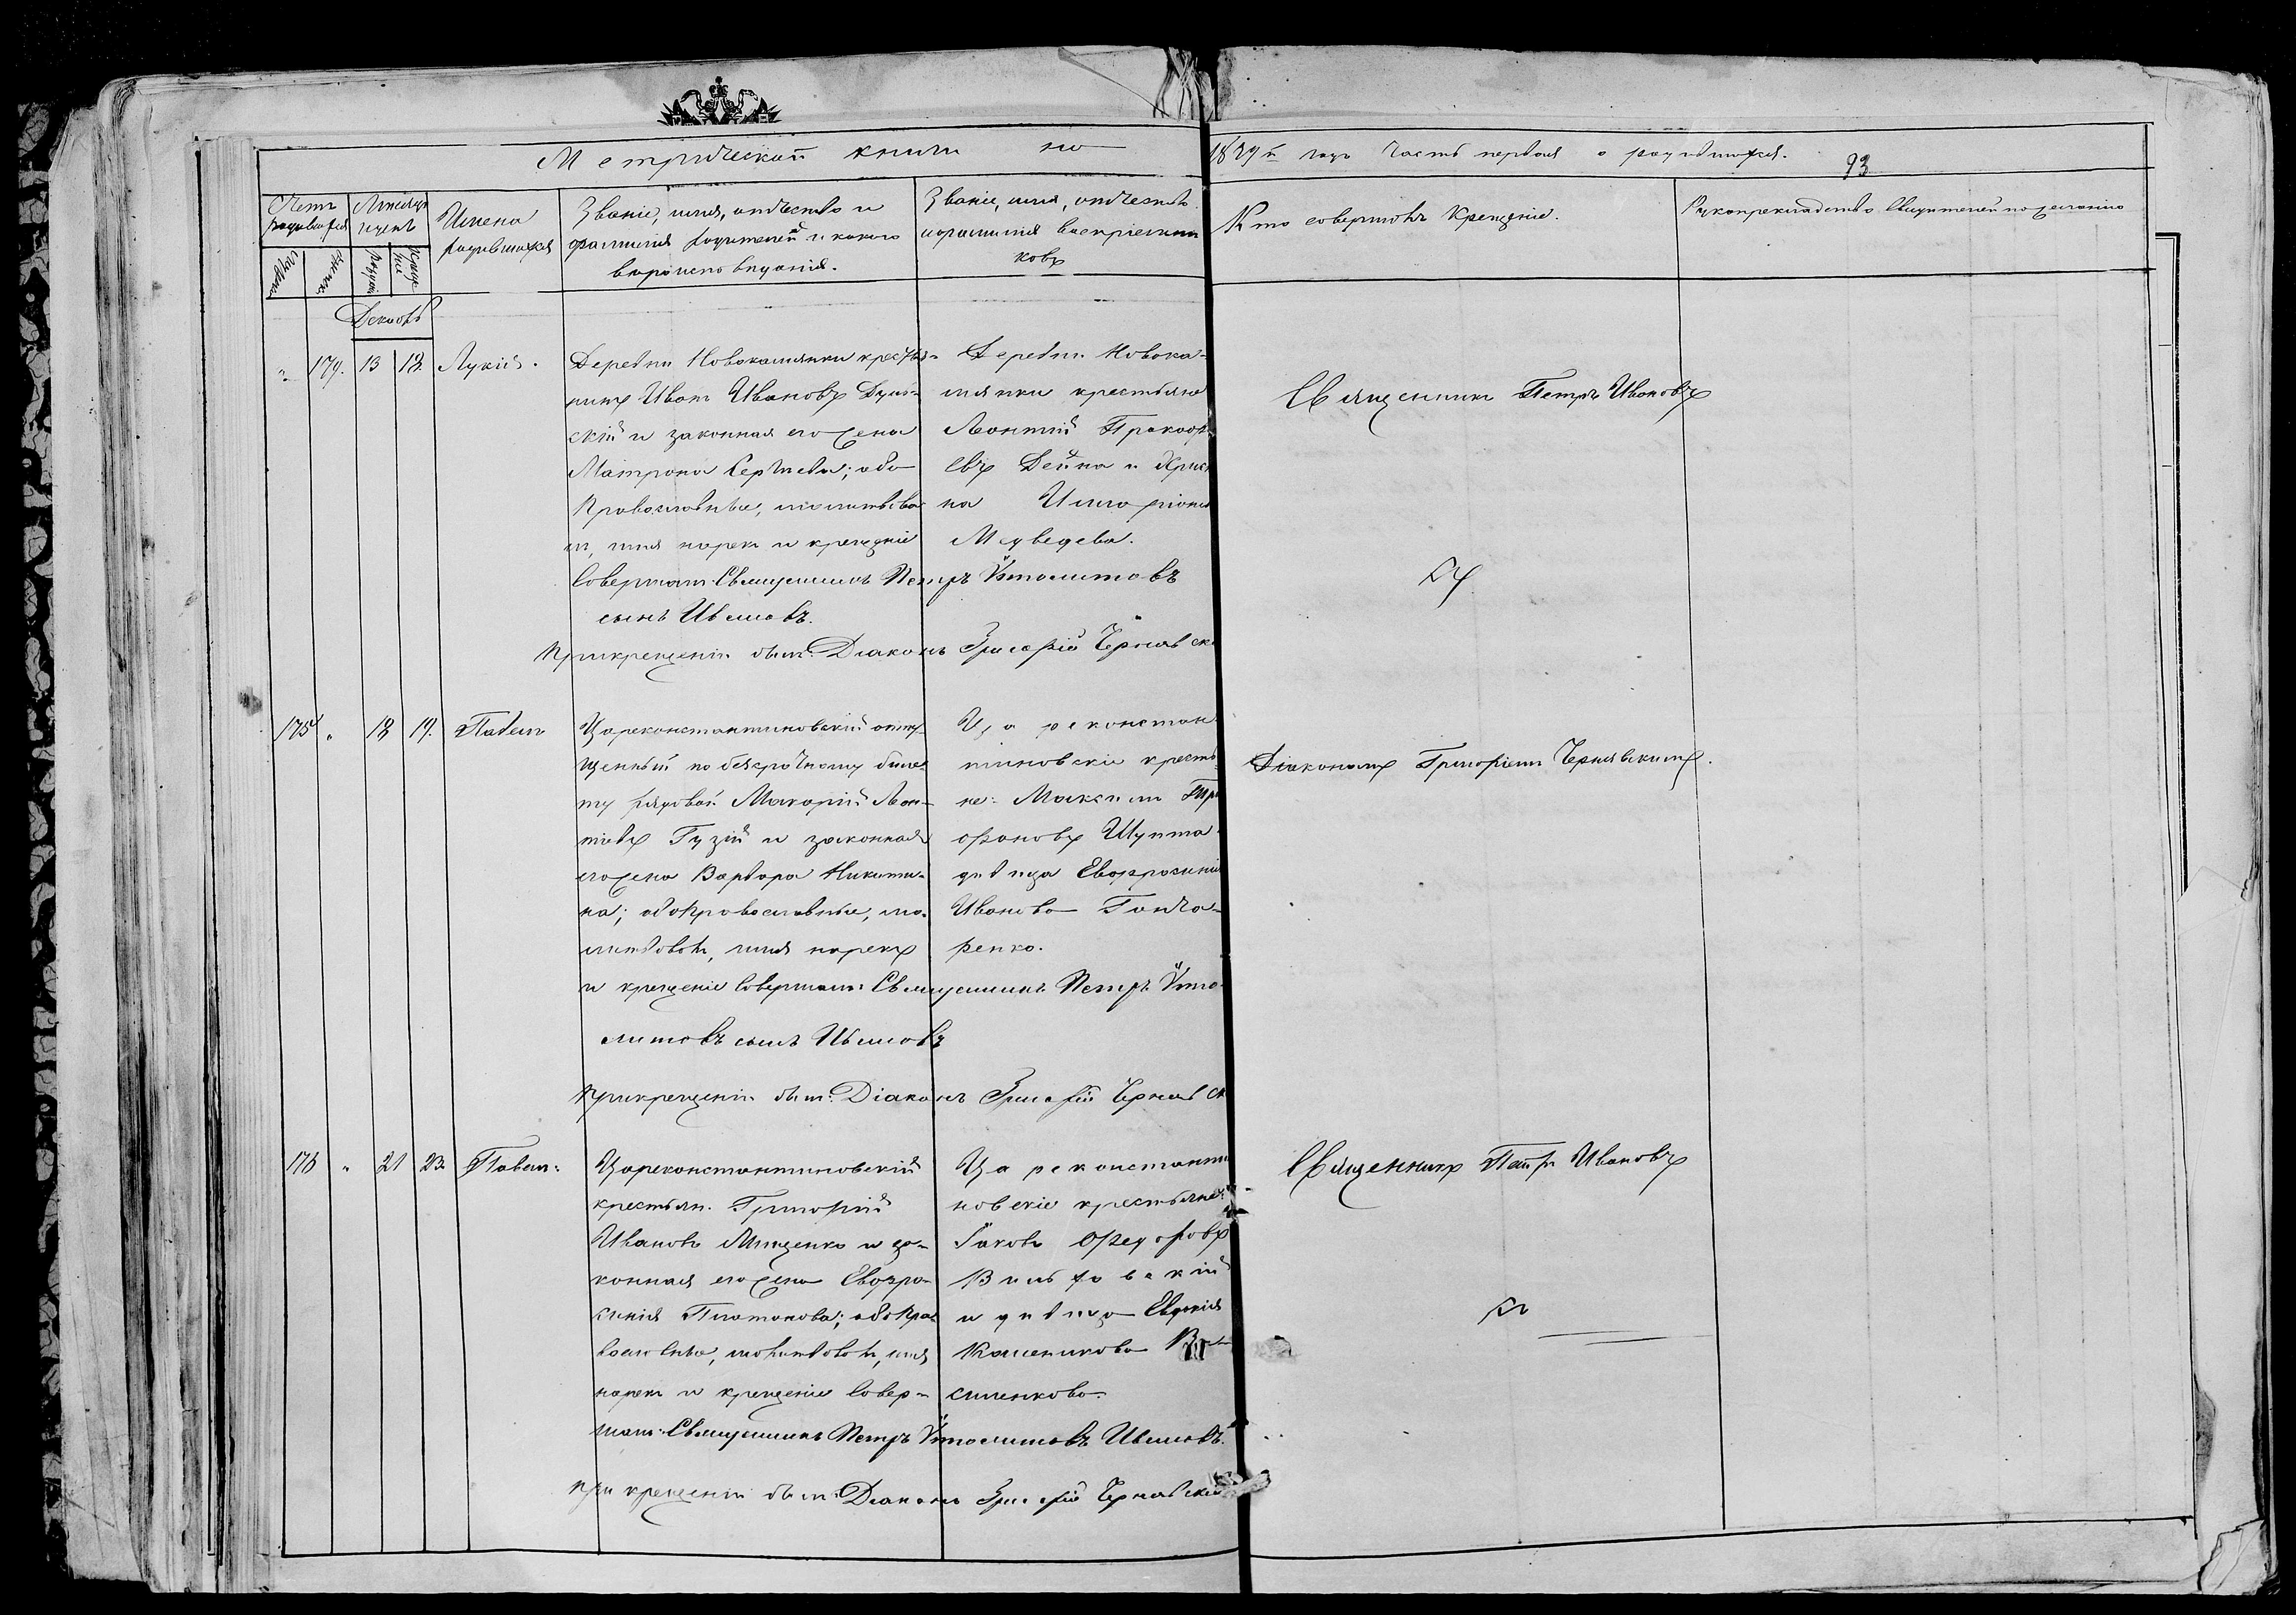 Метрической книги на 1879й годъ Часть первая о родившихся.
93
Счетъ родившихся
Мѣсяцъ и день
Имена родившихся
Званіе, имя, отчество и фамилія родителей и какого вѣроисповѣданія.
Званіе, имя, отчество и фамилія воспріемниковъ
Кто совершалъ Крещеніе.
Рукоприкладство свидѣтелей по желанію
Декабрь
" 179. 13 13. Лукія.
Деревни Новокаменки кресть-
нинъ Иванъ Ивановъ
скій и законная его жена
Матрона Сергіева; оба
Православные, молитвова-
лъ, имя нарекъ и крещеніе
Совершалъ: Священникъ Петръ Ѵполитовъ
сынъ Ивановъ.
При крещеніи былъ: Діаконъ Григорій Чернявск
Деревни Новока-
менки крестьяне
Леонтій Прокоф-
евъ Дейна и Крис
на
Медведева.
Священникъ Петръ Ивановъ
175 " 18 19. Павелъ
Цареконстантиновскій отпу-
щенный по безсрочному биле-
ту рядовой Макарій Леон-
тіевъ Гузій и законная
его жена Варвара Никити-
на; оба Православные, мо-
литвовалъ, имя нарекъ
и крещеніе Совершалъ: Священникъ Петръ Ѵпо-
литовъ сынъ Ивановъ
При крещеніи былъ: Діаконъ Григорій Чернявск
Цареконстан-
тиновскіе крестья-
не: Максимъ Три
фоновъ Шупта
дѣвица Евфросинія
Иванова Гонча-
ренко.
Діакономъ Григоріемъ Чернявскимъ.
176 " 21 23. Павелъ
Цареконстантиновскій
крестьян. Григорій
Ивановъ Мищенко и за-
конная его жена Евфро-
синія Платонова; оба Пра-
вославные, молитвовалъ, имя
нарекъ и крещеніе Совер-
шалъ: Священникъ Петръ Ѵполитовъ Ивановъ.
При крещеніи былъ: Діаконъ Григорій Чернявскій
Цареконстанти
новскіе крестьяне:
Іаковъ Ѳедоровъ
и дѣвица Евдокія
Священникъ Петръ Ивановъ